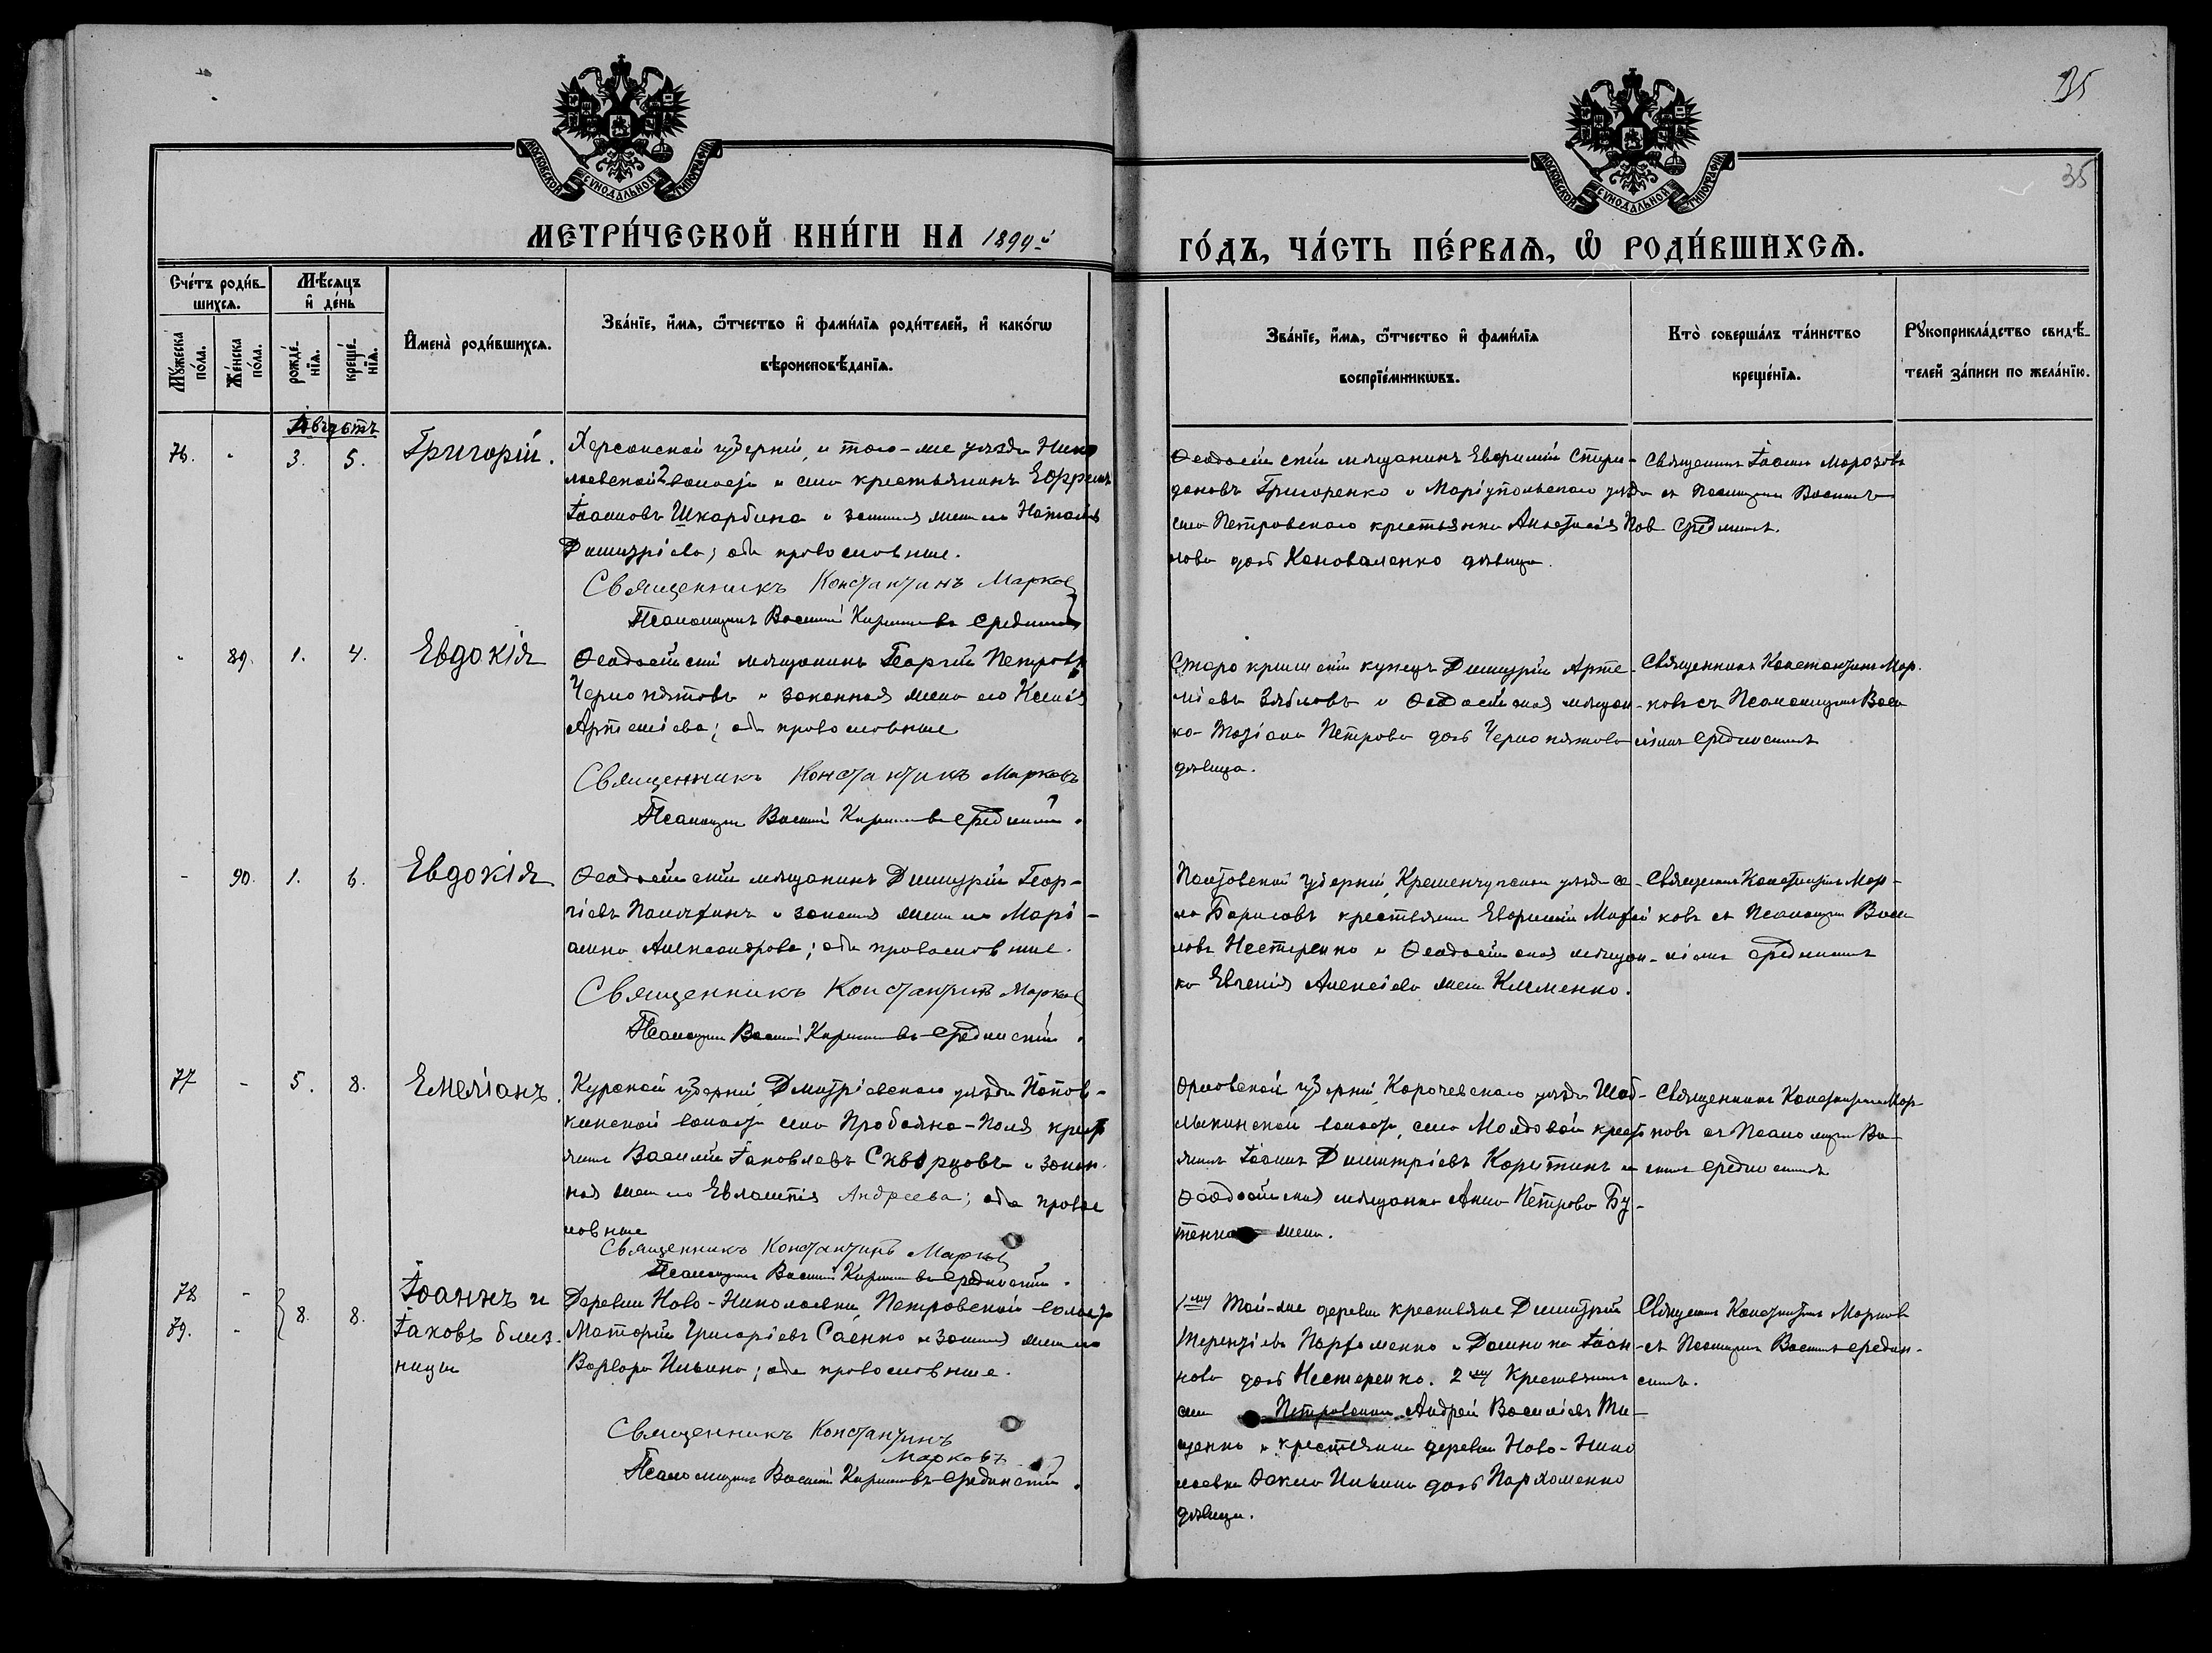 35
35
МОСКОВСКОЙ СѴНОДАЛЬНОЙ ТИПОГРАФІИ
МОСКОВСКОЙ СѴНОДАЛЬНОЙ ТИПОГРАФІИ
МЕТРИ́ЧЕСКОЙ КНИ́ГИ НА 1899й
ГО́ДЪ, ЧА́СТЬ ПЕ́РВАѦ, Ѡ҆ РОДИ́ВШИХСѦ.
Сче́тъ роди́в-
шихсѧ.
Мѣ́сѧцъ
и҆ де́нь
Мꙋ́жеска
по́ла.
Же́нска
по́ла.
рожде́-
нїѧ.
креще́-
нїѧ.
И҆мена̀ роди́вшихсѧ.
Зва́нїе, и҆́мѧ, ѻ҆́тчество и҆ фами́лїѧ роди́телей, и҆ како́гѡ
вѣроисповѣ́данїѧ.
Зва́нїе, и҆́мѧ, ѻ҆́тчество и҆ фами́лїѧ
воспрїе́мникѡвъ.
Кто̀ соверша́лъ та́инство
креще́нїѧ.
Рꙋкоприкла́дство свидѣ́-
телей за́писи по жела́нїю.
Августъ
76. - 3. 5. Григорій.
Херсонской губерніи, и того-же уѣзда Нико
лаевской волости и села крестьянинъ Ефримъ
Іоанновъ Шкарбина и законная жена его Наталія
Димитріева; оба православные.
Священникъ Константинъ Марковъ
Псаломщикъ Василій Кирилловъ Срединскій
Ѳеодосійскій мѣщанинъ Евфимій Спири-
доновъ Григоренко и Маріупольскаго уѣзда
села Петровскаго крестьянка Анастасія Пав
лова дочь Коноваленко дѣвица.
Священникъ Іоаннъ Морозовъ
съ Псаломщикомъ Василіемъ
Срединскимъ.
- 89. 1. 4. Евдокія
Ѳеодосійскій мѣщанинъ Георгій Петровъ
Чернопятовъ и законная жена его Ксенія
Артеміева; оба православные
Священникъ Константинъ Марковъ
Псаломщикъ Василій Кирилловъ Срединскій.
Старокрымскій купецъ Димитрій Арте-
міевъ Зябловъ и Ѳеодосійская мѣщан-
ка Татіана Петрова дочь Чернопятова
дѣвица.
Священникъ Константинъ Мар-
ковъ съ Псаломщикомъ Васи
ліемъ Срединскимъ
- 90. 1. 6. Евдокія
Ѳеодосійскій мѣщанинъ Димитрій Геор-
гіевъ и законная жена его Марі-
амна Александрова; оба православные.
Священникъ Константинъ Марковъ
Псаломщикъ Василій Кирилловъ Срединскій.
Полтовской губерніи, Кременчугскаго уѣзда се-
ла крестьянинъ Евфимій
Нестеренко и Ѳеодосійская мѣщан-
ка Евгенія Алексіева жена Клименко.
Священникъ Константинъ Мар-
ковъ съ Псаломщикомъ Васи
ліемъ Срединскимъ
77 - 5. 8. Емеліанъ.
Курской губерніи, Дмитріевскаго уѣзда Попов-
кинской волости села Пробожа-Поля крест
янинъ Василій Іаковлевъ Скворцовъ и закон-
ная жена его Евлампія Андреева; оба правос
лавные
Священникъ Константинъ Марковъ
Псаломщикъ Василій Кирилловъ Срединскій.
Орловской губерніи, Карачевскаго уѣзда Шаб-
лыкинской волости, села Молдовой крест
янинъ Іоаннъ Димитріевъ Коритинъ и
Ѳеодосійская мѣщанка Анна Петрова Бу-
тенко жена.
Священникъ Константинъ Мар
ковъ съ Псаломщикомъ Ва-
силіемъ Срединскимъ
78 - 8. 8. Іоаннъ и
79. - Іаковъ близ-
нецы
Деревни Ново-Николаевки, Петровской волости
Григоріевъ Саенко и законная жена его
Варвара Ильина; оба православные.
Священникъ Константинъ
Марковъ
Псаломщикъ Василій Кирилловъ Срединскій.
1му Той-же деревни крестьяне Димитрій
Терентіевъ Парфоменко и Домника Іоан-
нова дочь Нестеренко. 2му Крестьянинъ
села Петровскаго Андрей Василіевъ Ти-
щенко и крестьянка деревни Ново-Нико
лаевки Ѳекла Ильина дочь Пархоменко
дѣвица.
Священникъ Константинъ Марковъ
съ Псаломщикомъ Василіемъ Средин-
скимъ.